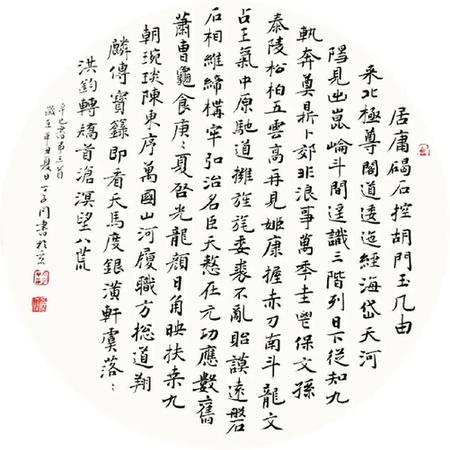 居庸碣石控胡門玉几由
来北極尊閣道逶迤經海岱天河
隱見出崑崙斗間遥識三階列日下從知九
軌奔奠鼎卜郊非浪事萬季圭鬯保文孫
泰陵松柏五雲高再見姬康握赤刀南斗龍文
占王氣中原馳道擁旌旄委裘不亂貽謨遠磐
石相維締構牢弘治名臣天憖在元功應數舊
蕭曹龜食庚〻夏啓光龍顏日角映扶桒九
朝琬琰陳東序萬國山河履職方揔道翔
麟傳寶錄即看天馬度銀潢軒虞落〻
洪鈞轉矯首滄溟望八荒
辛巳書
歲在辛丑夏日書於京